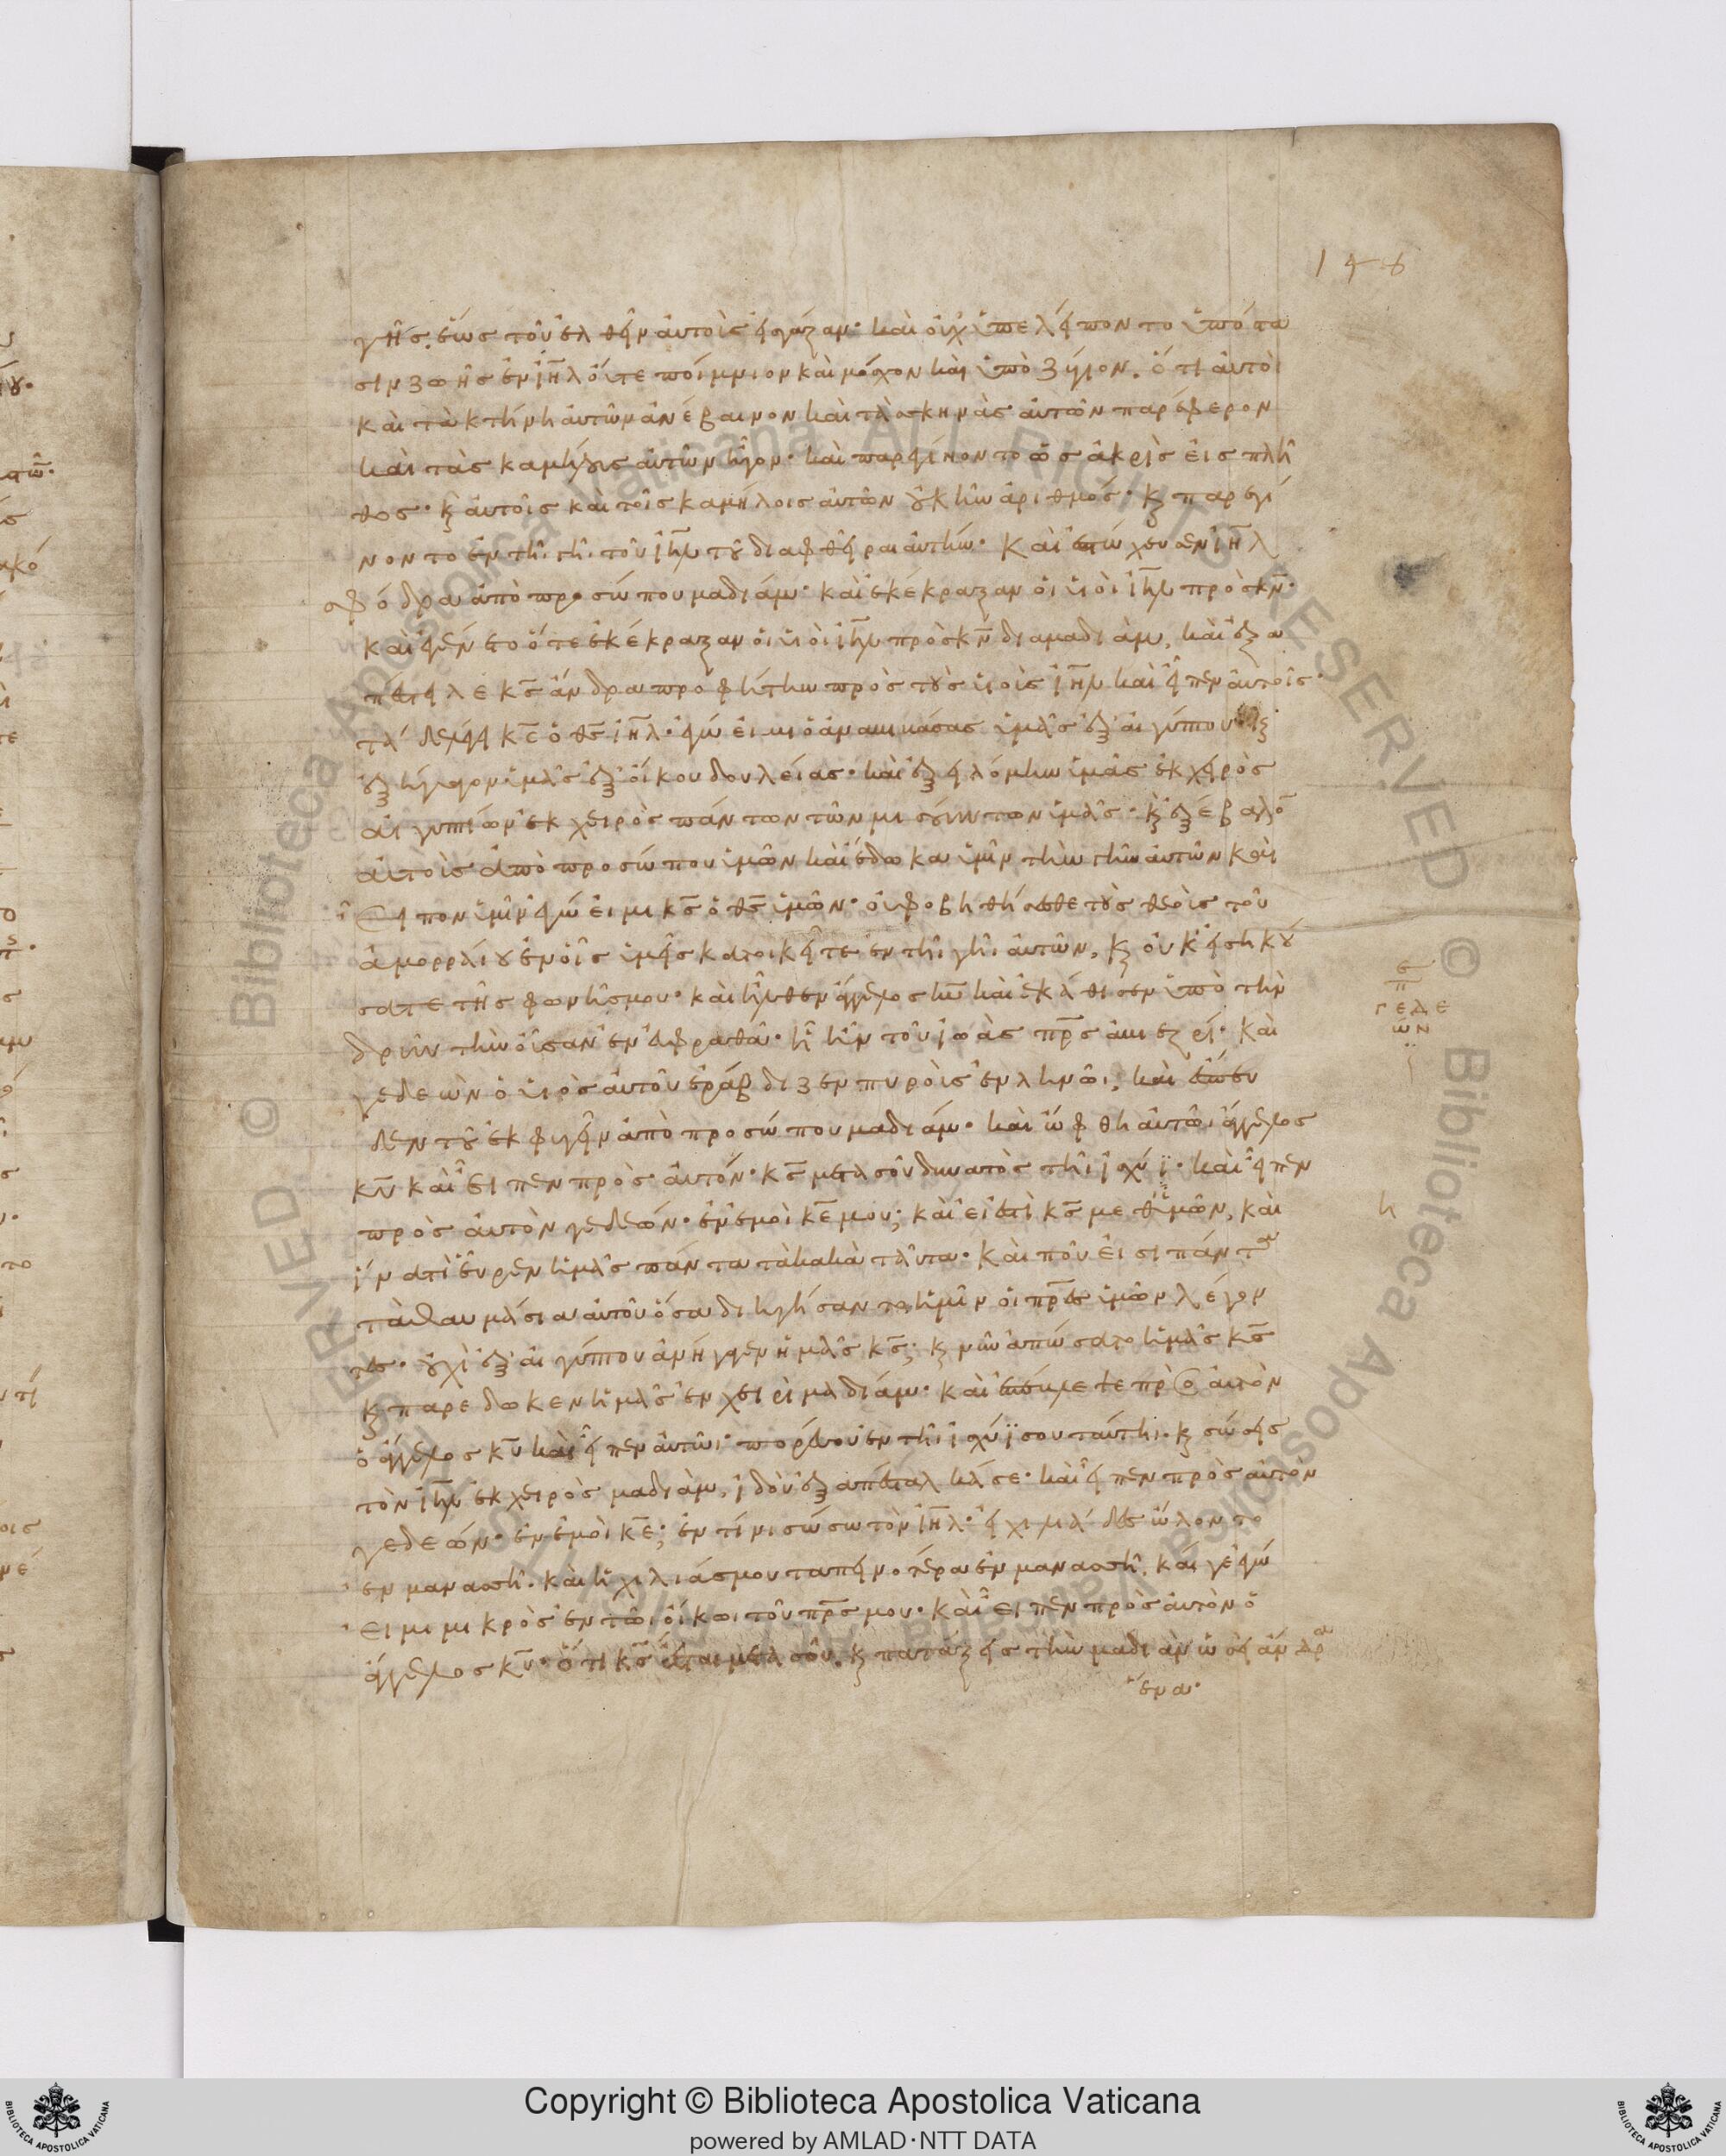 146
γῆς. ἕως τοῦ ἐλθεῖν αὐτοὺς εἰς γάζαν· καὶ οὐχ ὑπελείποντο ὑπόστα
σιν ζωῆς ἐν ιηλ οὔτε ποίμνιον καὶ μόσχον καὶ ὑποζύγιον. ὅτι αὐτοὶ
καὶ τὰ κτήνη αὐτῶν ἀνέβαινον καὶ τὰς σκηνὰς αὐτῶν παρέφερον
καὶ τὰς καμήλους αὐτῶν ἦγον· καὶ παρεγίνοντο ὡς ἀκρὶς εἰς πλῆ
θος· κ αὐτοῖς καὶ τοῖς καμήλοις αὐτῶν οὐκ ἦν ἀριθμός· κ παρεγί
νοντο ἐν τῆι γῆι τοῦ ιηλ τοῦ διαφθεῖραι αὐτήν· Καὶ ἐπτώχευσεν ιηλ
σφόδρα ἀπὸ προσώπου μαδιάμ· καὶ ἐκέκραξαν οἱ υἱοὶ ιηλ πρὸς κν·
καὶ ἐγένετο ὅτε ἐκέκραξαν οἱ υἱοὶ ιηλ πρὸς κν διὰ μαδιάμ, καὶ ἐξα
πέστειλε κς ἄνδρα προφήτην πρὸς τοὺς υἱοὺς ιηλ καὶ εἶπεν αὐτοῖς·
τάδε λέγει κς ὁ θς ιηλ· ἐγώ εἰμι ὁ ἀναβιβάσας ὑμᾶς ἐξ αἰγύπτου κ
ἐξήγαγον ὑμᾶς ἐξ οἴκου δουλείας· καὶ ἐξειλόμην ὑμᾶς ἐκ χειρὸς
αἰγυπτίων ἐκ χειρὸς πάντων τῶν μισούντων ὑμᾶς· κ ἐξέβαλον
αὐτοὺς ἀπὸ προσώπου ὑμῶν καὶ ἔδωκα ὑμῖν τὴν γῆν αὐτῶν καὶ
εἶπον ὑμῖν ἐγώ εἰμι κς ὁ θς ὑμῶν· οὐ φοβηθήσεσθε τοὺς θεοὺς τοῦ
ἀμορραίου ἐν οἷς ὑμεῖς κατοικεῖτε ἐν τῆι γῆι αὐτῶν. κ οὐκ εἰσηκού
σατε τῆς φωνῆς μου· καὶ ἦλθεν ἄγγελος κυ καὶ ἐκάθισεν ὑπὸ τὴν
δρῦν τὴν οὖσαν ἐν ἐφραθᾶ· ἣ ἦν τοῦ ἰωὰς πρς ἀβιεζρί· καὶ
γεδεὼν ὁ υἱὸς αὐτοῦ ἐράβδιζεν πυροὺς ἐν ληνῶι. καὶ ἔσπευ
δεν τοῦ ἐκφυγεῖν ἀπὸ προσώπου μαδιάμ· καὶ ὤφθη αὐτῶι ἄγγελος
κυ καὶ εἶπεν πρὸς αὐτόν· κς μετὰ σοῦ δυνατὸς τῆι ἰσχύϊ· καὶ εἶπεν
πρὸς αὐτὸν γεδεών· ἐν ἐμοὶ κε μου; καὶ εἰ ἔστι κς μεθ ἡμῶν, καὶ
ἵνα τί εὗρεν ἡμᾶς πάντα τὰ κακὰ ταῦτα· Καὶ ποῦ εἰσι πάντα
τὰ θαυμάσια αὐτοῦ ὅσα διηγήσαντο ἡμῖν οἱ πρες ἡμῶν λέγον
τες· οὐχὶ ἐξ αἰγύπτου ἀνήγαγεν ἡμᾶς κς; κ νῦν ἀπώσατο ἡμᾶς κς
κ παρέδωκεν ἡμᾶς ἐν χειρὶ μαδιάμ· καὶ ἐπέβλεψε πρὸς αὐτὸν
ὁ ἄγγελος κυ καὶ εἶπεν αὐτῶι· πορεύου ἐν τῆι ἰσχύϊ σου ταύτηι. κ σώσεις
τὸν ιηλ ἐκ χειρὸς μαδιάμ, ἰδοὺ ἐξαπέσταλκά σε· καὶ εἶπεν πρὸς αὐτὸν
γεδεών· ἐν ἐμοὶ κε; ἐν τίνι σώσω τὸν ιηλ·
ἐν μανασσῆ. καὶ ἡ χιλιάς μου ταπεινοτέρα ἐν μανασσῆ, καί γε ἐγώ
εἰμι μικρὸς ἐν τῶι οἴκωι τοῦ πρς μου· καὶ εἶπεν πρὸς αὐτὸν ὁ
ἄγγελος κυ· ὅτι κς ἔσται μετὰ σοῦ. κ πατάξεις τὴν μαδιὰμ ὡσεὶ ἄνδρα
ἕνα·
γεδε
ών
Copyright © Biblioteca Apostolica Vaticana
powered by AMLAD·NTT DATA